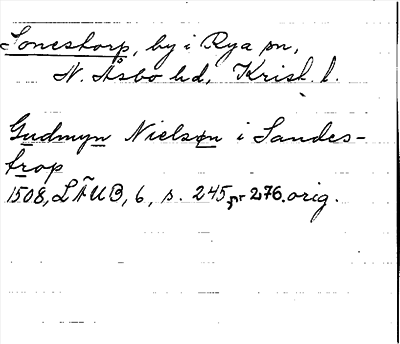 Sonestorp, by i Rya sn,
N. Åsbo hd, Krist. l.
Gudmyn Nielsøn i Sandes-
trop
1508, LÄUB, 6, s. 245, nr 276. orig.